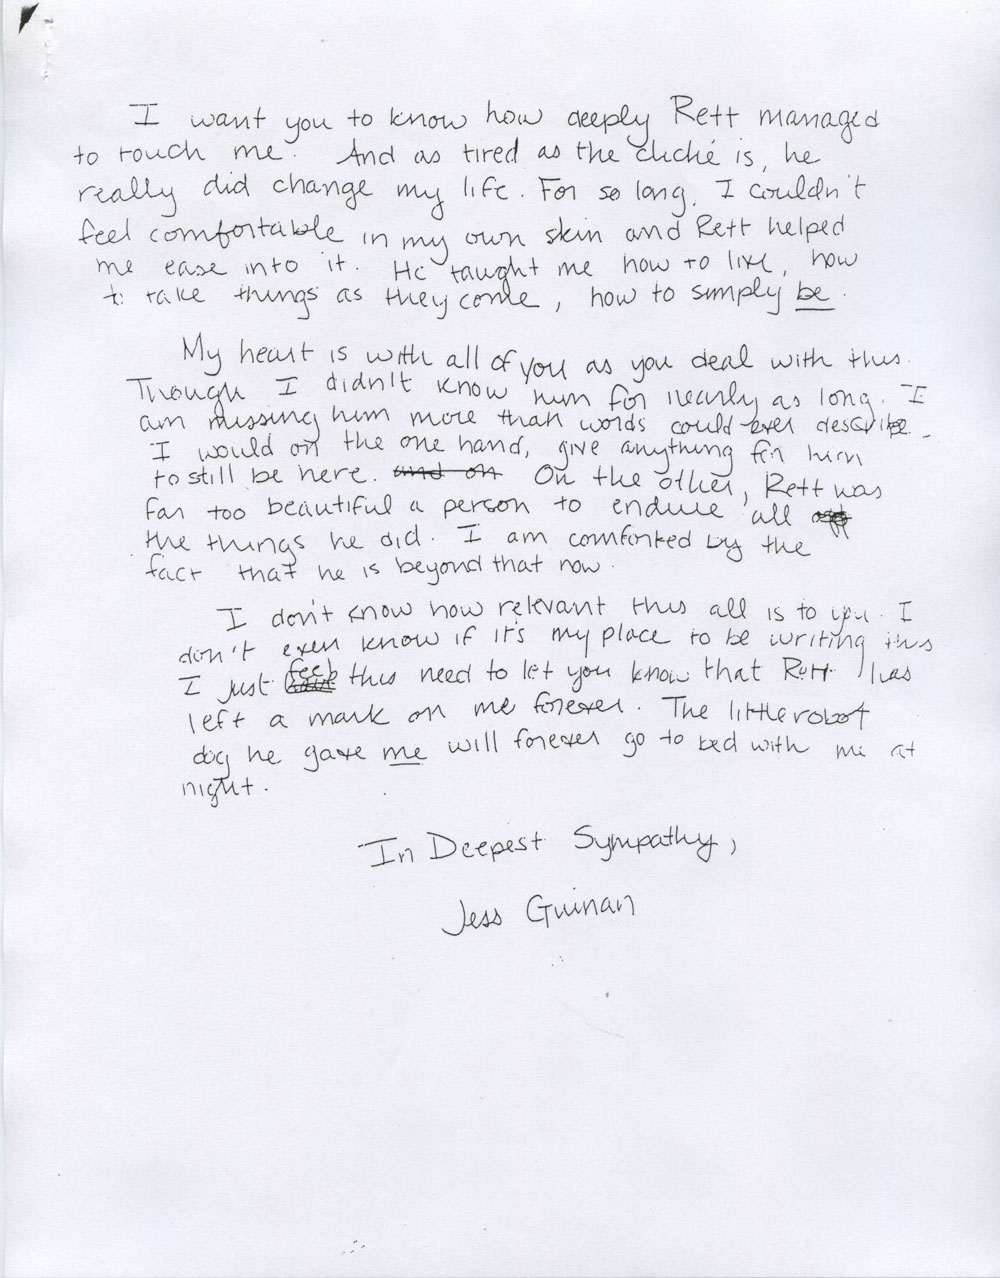 I want you to know how deeply Rett managed
to touch me. And as tired as the cliché is, he
really did change my life. For so long, I couldn't
feel comfortable in my own skin and Rett helped
me ease into it. He taught me how to live, how
to take things as they come, how to simply be.
My heart is with all of you as you deal with this.
Though I didn't know him for nearly as long. I
am missing him more than words could ever describe.
I would on the one hand, give anything for him
to still be here. and on On the other, Rett was
far too beautiful a person to endure all
the things he did. I am comforted by the
fact that he is beyond that now.
I don't know how relevant this all is to you. I
don't even know if it's my place to be writing this
I just feel this need to let you know that Rett has
left a mark on me forever. The little robot
dog he gave me will forever go to bed with me at
night.
In Deepest Sympathy,
Jess Guinan